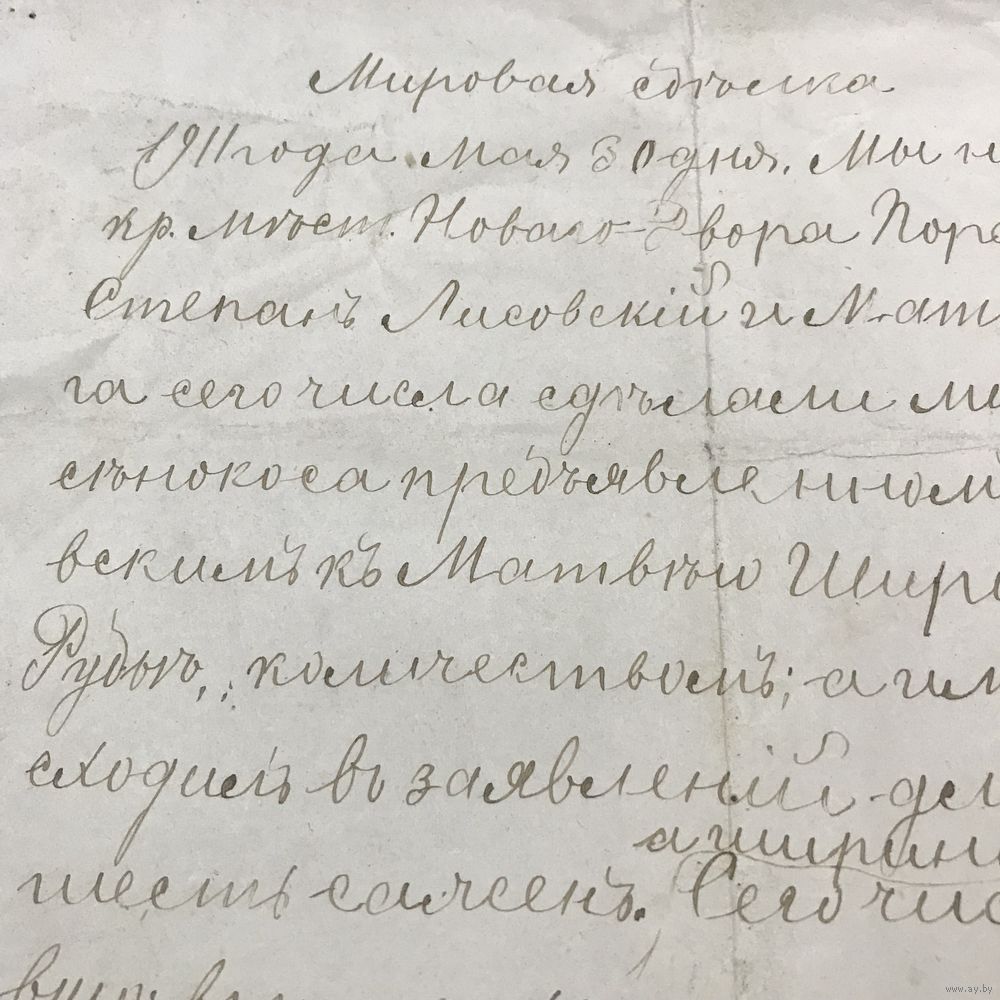 Мировая сдѣлка
1911 года мая 30 дня. Мы н
кр. мѣст. Новаго-Двора Поро
Степанъ Лисовскій и Мат
га сего числа сдѣлали ми
сѣнокоса предъявленном
вскимъ къ Матвѣю Широ
количествомъ; а им
сходимъ въ заявленій дл
а ширин
шесть сажень. Сего чис
www.ay.by